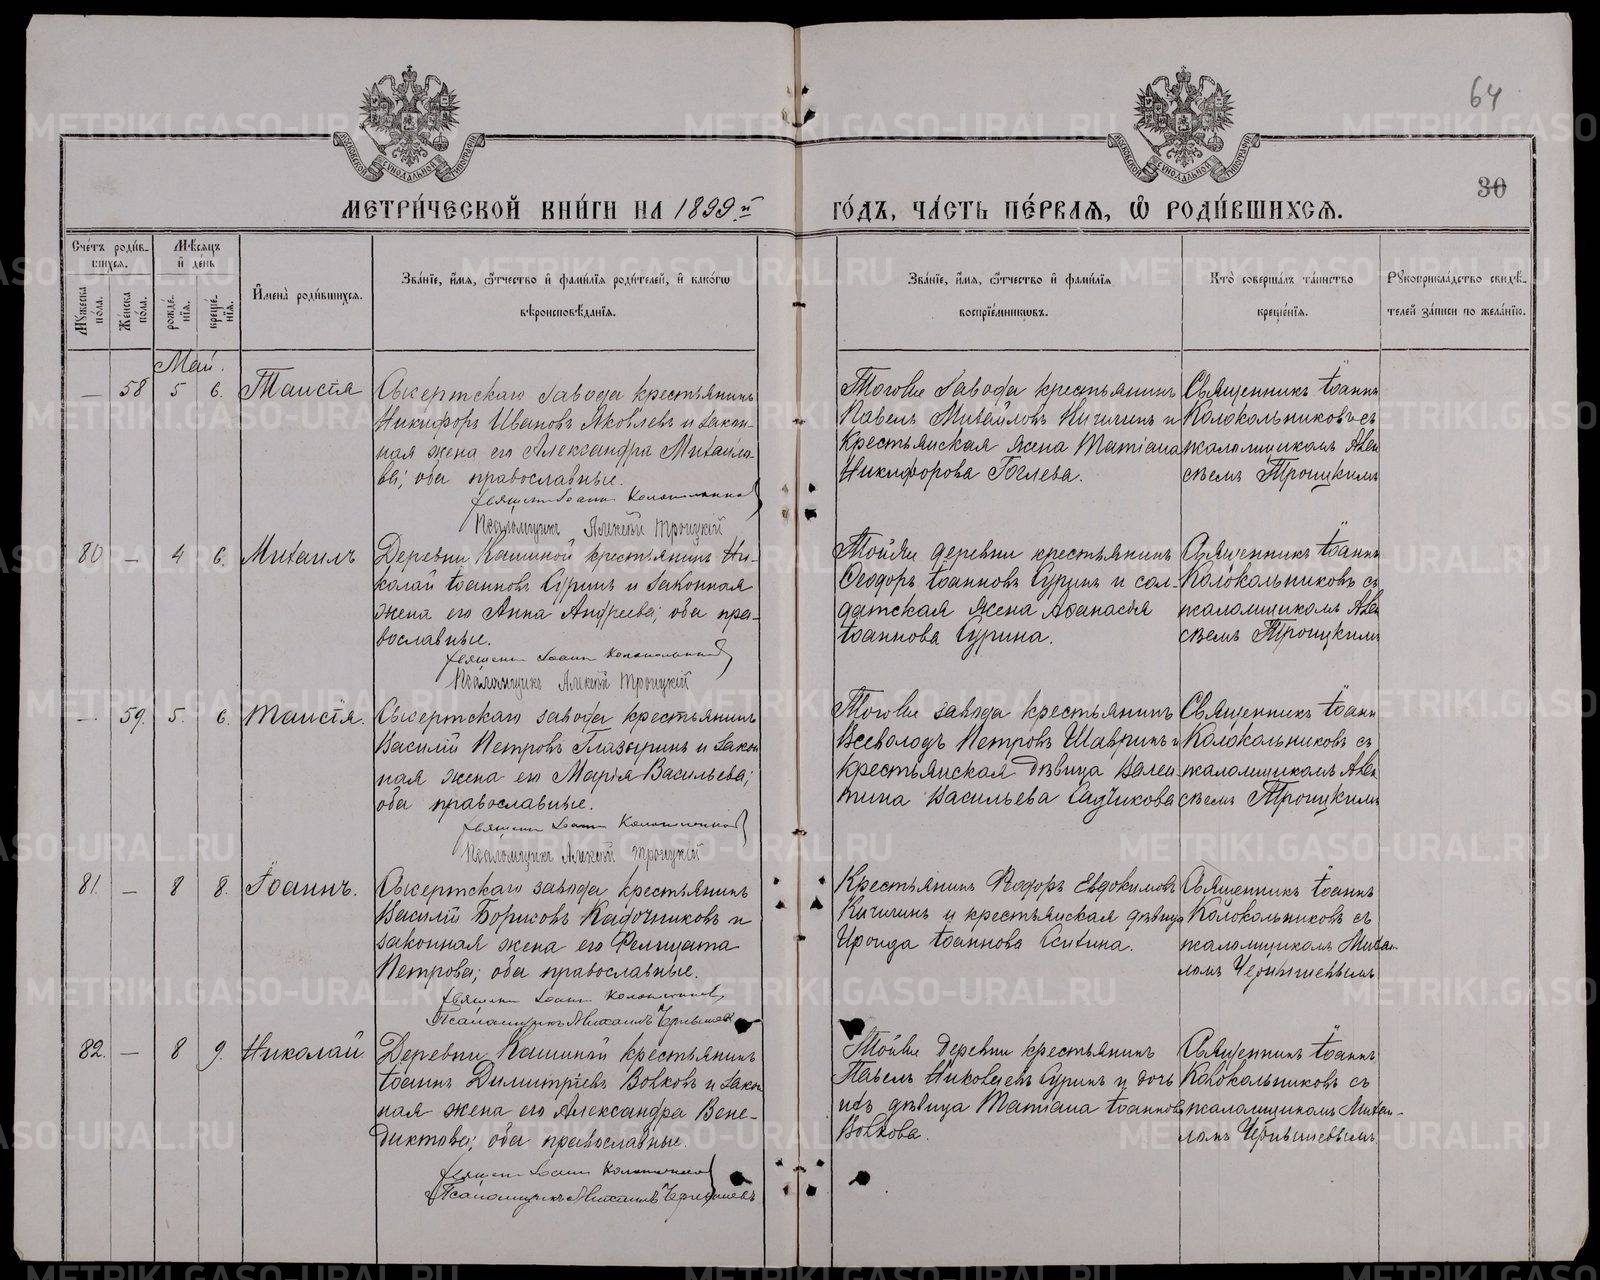 64
30
МЕТРИ́ЧЕСКОЙ КНИ́ГИ НА 1899й
ГО́ДЪ, ЧА́СТЬ ПЕ́РВАЯ, Ѡ҆ РОДИ́ВШИХСЯ.
Сче́тъ роди́в-
шихся.
Му́жеска по́ла.
Же́нска по́ла.
Мѣ́сяцъ
и҆ де́нь
рожде́-
нїя.
креще́-
нїя.
И҆мена̀ роди́вшихся.
Зва́нїе, и҆́мя, ѻ҆́тчество и҆ фами́лїя роди́телей, и҆ како́гѡ
вѣроисповѣ́данїя.
Зва́нїе, и҆́мя, ѻ҆́тчество и҆ фами́лїя
воспрїе́мниковъ.
Кто̀ соверша́лъ та́инство
креще́нїя.
Рꙋкоприкла́дство свидѣ́-
телей за́писи по жела́нїю.
Май.
— 58 5 6. Таисія
Сысертскаго завода крестьянинъ
Никифоръ Ивановъ Яковлевъ и закон-
ная жена его Александра Михайло-
ва; оба православные.
Священ. Іоаннъ Колокольниковъ
Псаломщикъ Алексѣй Троицкій
Тогоже завода крестьянинъ
Павелъ Михайловъ Кичигинъ и
крестьянская жена Татіана
Никифорова
Священникъ Іоаннъ
Колокольниковъ съ
псаломщикомъ Алек
сѣемъ Троицкимъ
80 — 4 6. Михаилъ
Деревни Кашиной крестьянинъ Ни-
колай Іоанновъ Суринъ и законная
жена его Анна Андреева; оба пра-
вославные.
Священ. Іоаннъ Колокольниковъ
Псаломщикъ Алексѣй Троицкій
Тойже деревни крестьянинъ
Ѳеодоръ Іоанновъ Суринъ и сол-
датская жена Аѳанасія
Іоаннова Сурина.
Священникъ Іоаннъ
Колокольниковъ съ
псаломщикомъ Алек
сѣемъ Троицкимъ
— 59. 5. 6. Таисія.
Сысертскаго завода крестьянинъ
Василій Петровъ Глазыринъ и закон
ная жена его Марія Васильева;
оба православные.
Священ. Іоаннъ Колокольниковъ
Псаломщикъ Алексѣй Троицкій
Тогоже завода крестьянинъ
Всеволодъ Петровъ Шавринъ и
крестьянская дѣвица Вален
тина Васильева Садчикова
Священникъ Іоаннъ
Колокольниковъ съ
псаломщикомъ Алек
сѣемъ Троицкимъ
81. — 8 8. Іоаннъ.
Сысертскаго завода крестьянинъ
Василій Борисовъ Кадочниковъ и
законная жена его Фелицата
Петрова; оба православные.
Священ. Іоаннъ Колокольниковъ
Псаломщикъ Михаилъ Чернышевъ
Крестьянинъ Ѳедоръ Евдокимовъ
Кичигинъ и крестьянская дѣвица
Ираида Іоаннова
Священникъ Іоаннъ
Колокольниковъ съ
псаломщикомъ Михаи-
ломъ Чернышевымъ
82. — 8 9. Николай
Деревни Кашиной крестьянинъ
Іоаннъ Димитріевъ Волковъ и закон
ная жена его Александра Вене-
диктова; оба православные.
Священ. Іоаннъ Колокольниковъ
Псаломщикъ Михаилъ Чернышевъ
Тойже деревни крестьянинъ
Павелъ Николаевъ Суринъ и дочь
ихъ дѣвица Татіана Іоаннова
Волкова.
Священникъ Іоаннъ
Колокольниковъ съ
псаломщикомъ Михаи-
ломъ Чернышевымъ
METRIKI.GASO-URAL.RU